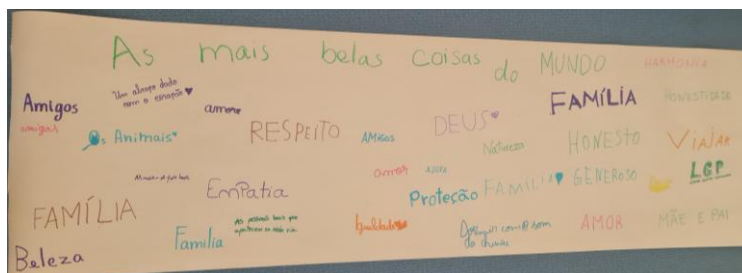 As mais belas coisas do MUNDO
HARMONIA
Amigos
Um abraço dado
com o coração
amore
FAMÍLIA
HONESTIDADE
amigos
Os Animais
RESPEITO
AMIGOS
DEUS
Natureza
HONESTO
VIAJAR
amor
AJUDA
Empatia
Proteção
FAMÍLIA
GENEROSO
LGP
FAMÍLIA
Família
As pessoas boas que
Igualdade
Dormir com o som
da chuva
AMOR
MÃE E PAI
Beleza